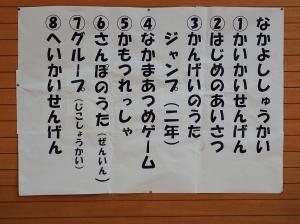 なかよししゅうかい
①かいかいせんげん
②はじめのあいさつ
③かんげいのうた
ジャンプ(二年)
④なかまあつめゲーム
⑤かもつれっしゃ
⑥さんぽのうた(ぜんいん)
⑦グループ(じこしょうかい)
⑧へいかいせんげん